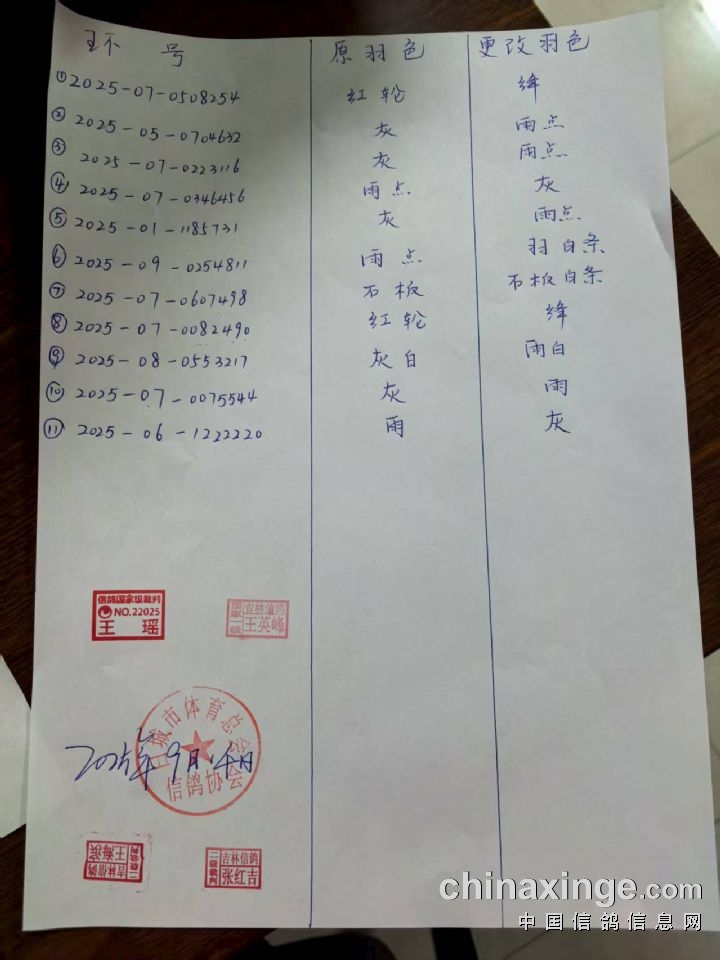 环号 原羽色 更改羽色
① 2025-07-0508254 红轮 绛
② 2025-05-0704632 灰 雨点
③ 2025-07-0223116 灰 雨点
④ 2025-07-0346456 雨点 灰
⑤ 2025-01-1185731 灰 雨点
⑥ 2025-09-0254811 雨点 羽白条
⑦ 2025-07-0607498 石板 石板白条
⑧ 2025-07-0082490 红轮 绛
⑨ 2025-08-0553217 灰白 雨白
⑩ 2025-07-0075544 灰 雨
⑪ 2025-06-1222220 雨 灰
信鸽国家级裁判
NO.22025
王瑶
国家一级
吉林信鸽
王英峰
白城市体育总会
信鸽协会
2025年9月
吉林信鸽
王海滨
二级裁判
吉林信鸽
张红吉
chinaxinge.com
中国信鸽信息网